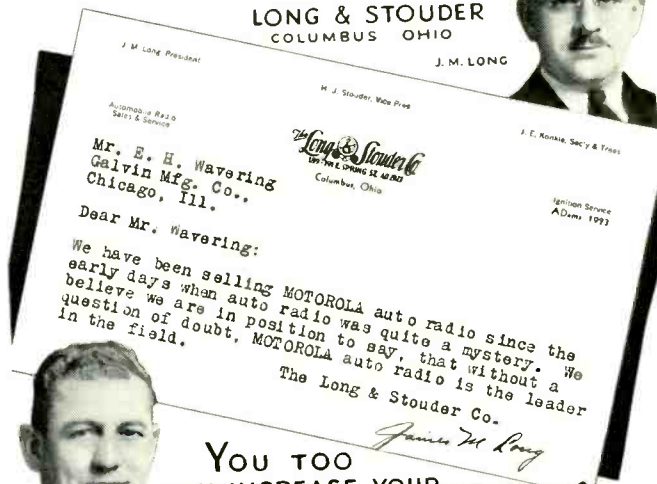 LONG & STOUDER
COLUMBUS OHIO
J. M. LONG
J. M. Long President
H. J. Stouder, Vice Pres
J. E. Konkle, Sec'y & Treas
Automobile Radio
Sales & Service
The Long & Stouder Co
E. SPRING ST.
Columbus, Ohio
Ignition Service
ADams 1993
Mr. E. H. Wavering
Galvin Mfg. Co.,
Chicago, Ill.
Dear Mr. Wavering:
We have been selling MOTOROLA auto radio since the
early days when auto radio was quite a mystery. We
believe we are in position to say, that without a
question of doubt, MOTOROLA auto radio is the leader
in the field.
The Long & Stouder Co.
James M Long
YOU TOO
INCREASE YOUR